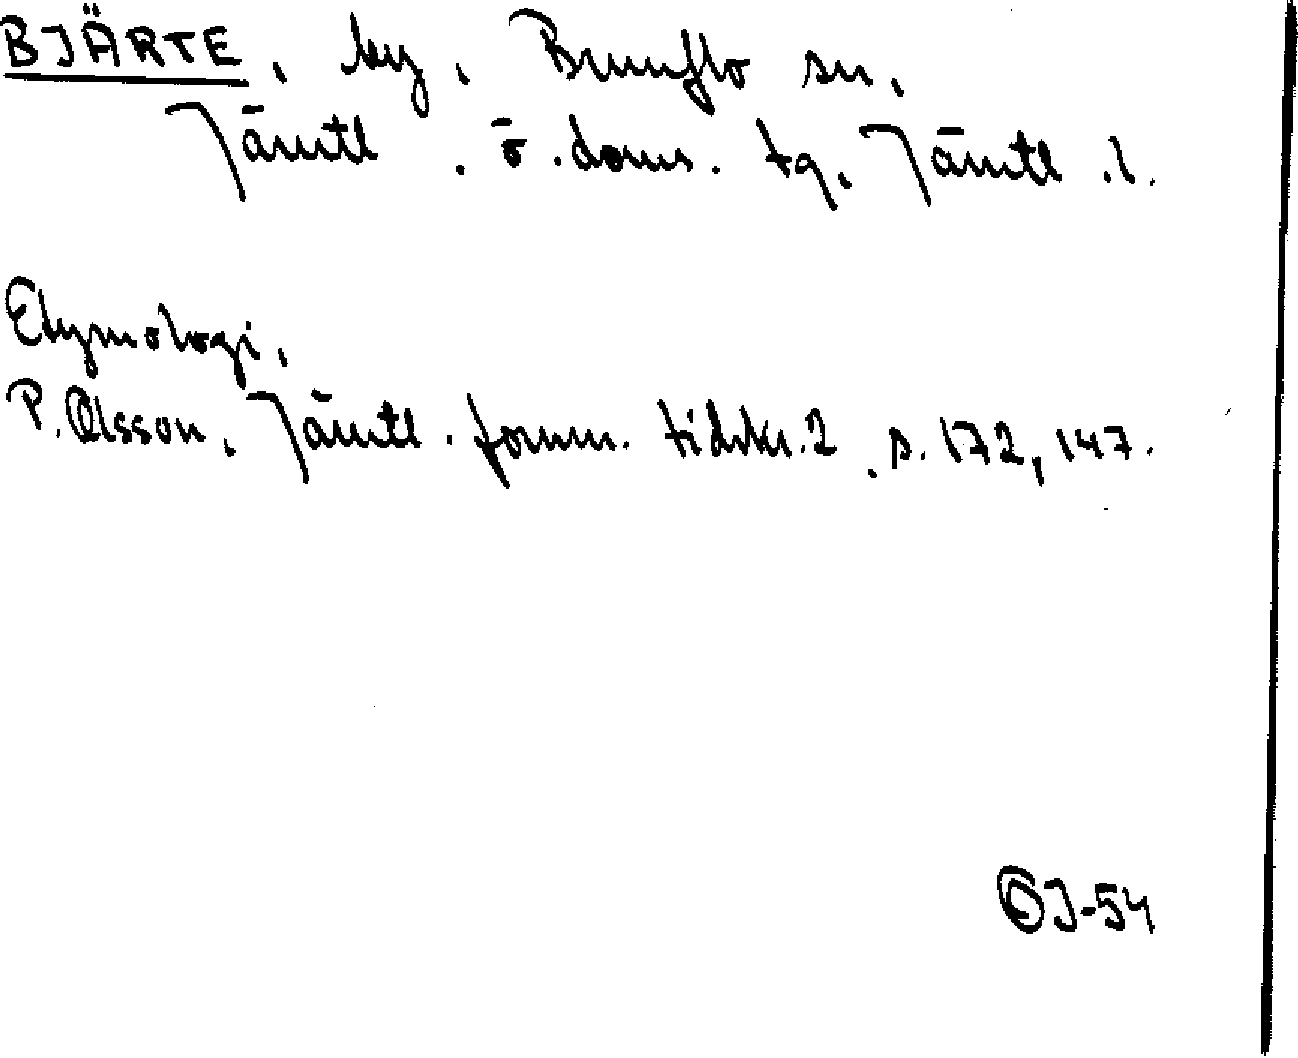 BJÄRTE, by, Brunflo sn,
Jämtl. ö. doms. tg, Jämtl. l.
Etymologi,
P. Olsson, Jämtl. fornm. tidskr. 2, s. 172, 147.
OJ-54